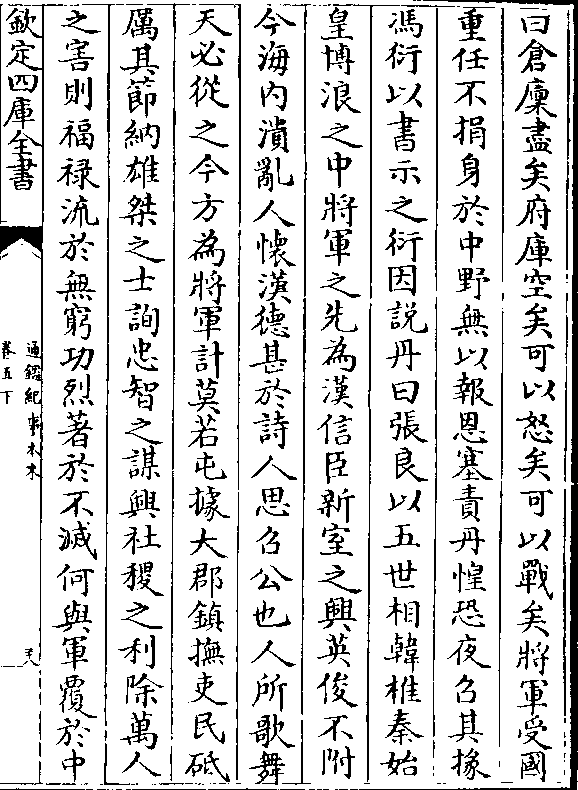 曰倉廩盡矣府庫空矣可以怒矣可以戰矣將軍受國
重任不捐身於中野無以報恩塞責丹惶恐夜召其掾
馮衍以書示之衍因説丹曰張良以五世相韓椎秦始
皇博浪之中將軍之先為漢信臣新室之興英俊不附
今海内潰亂人懷漢德甚於詩人思召公也人所歌舞
天必從之今方為將軍計莫若屯據大郡鎮撫吏民砥
厲其節納雄桀之士詢忠智之謀興社稷之利除萬人
之害則福禄流於無窮功烈著於不滅何與軍覆於中
欽定四庫全書
通鑑紀事本末
卷五下